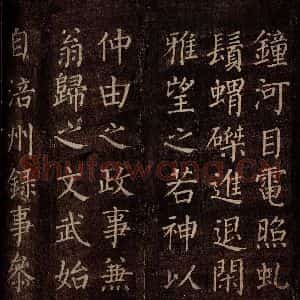 鐘河目電照虬
鬚蝟磔進退閑
雅望之若神以
仲由之政事兼
翁歸之文武始
自涪州録事參